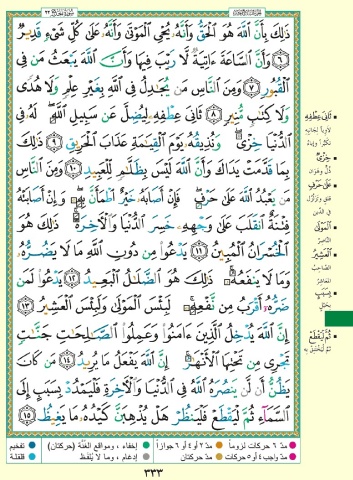 ذَٰلِكَ بِأَنَّ ٱللَّهَ هُوَ ٱلْحَقُّ وَأَنَّهُۥ يُحْىِ ٱلْمَوْتَىٰ وَأَنَّهُۥ عَلَىٰ كُلِّ شَىْءٍ قَدِيرٌ
٦ وَأَنَّ ٱلسَّاعَةَ ءَاتِيَةٌ لَّا رَيْبَ فِيهَا وَأَنَّ ٱللَّهَ يَبْعَثُ مَن فِى
ٱلْقُبُورِ ٧ وَمِنَ ٱلنَّاسِ مَن يُجَٰدِلُ فِى ٱللَّهِ بِغَيْرِ عِلْمٍ وَلَا هُدًى
وَلَا كِتَٰبٍ مُّنِيرٍ ٨ ثَانِىَ عِطْفِهِۦ لِيُضِلَّ عَن سَبِيلِ ٱللَّهِ لَهُۥ فِى
ٱلدُّنْيَا خِزْىٌ وَنُذِيقُهُۥ يَوْمَ ٱلْقِيَٰمَةِ عَذَابَ ٱلْحَرِيقِ ٩ ذَٰلِكَ
بِمَا قَدَّمَتْ يَدَاكَ وَأَنَّ ٱللَّهَ لَيْسَ بِظَلَّٰمٍ لِّلْعَبِيدِ ١٠ وَمِنَ ٱلنَّاسِ
مَن يَعْبُدُ ٱللَّهَ عَلَىٰ حَرْفٍ فَإِنْ أَصَابَهُۥ خَيْرٌ ٱطْمَأَنَّ بِهِۦ وَإِنْ أَصَابَتْهُ
فِتْنَةٌ ٱنقَلَبَ عَلَىٰ وَجْهِهِۦ خَسِرَ ٱلدُّنْيَا وَٱلْءَاخِرَةَ ذَٰلِكَ هُوَ
ٱلْخُسْرَانُ ٱلْمُبِينُ ١١ يَدْعُوا۟ مِن دُونِ ٱللَّهِ مَا لَا يَضُرُّهُۥ
وَمَا لَا يَنفَعُهُۥ ذَٰلِكَ هُوَ ٱلضَّلَٰلُ ٱلْبَعِيدُ ١٢ يَدْعُوا۟ لَمَن
ضَرُّهُۥٓ أَقْرَبُ مِن نَّفْعِهِۦ لَبِئْسَ ٱلْمَوْلَىٰ وَلَبِئْسَ ٱلْعَشِيرُ ١٣
إِنَّ ٱللَّهَ يُدْخِلُ ٱلَّذِينَ ءَامَنُوا۟ وَعَمِلُوا۟ ٱلصَّٰلِحَٰتِ جَنَّٰتٍ
تَجْرِى مِن تَحْتِهَا ٱلْأَنْهَٰرُ إِنَّ ٱللَّهَ يَفْعَلُ مَا يُرِيدُ ١٤ مَن كَانَ
يَظُنُّ أَن لَّن يَنصُرَهُ ٱللَّهُ فِى ٱلدُّنْيَا وَٱلْءَاخِرَةِ فَلْيَمْدُدْ بِسَبَبٍ إِلَى
ٱلسَّمَآءِ ثُمَّ لْيَقْطَعْ فَلْيَنظُرْ هَلْ يُذْهِبَنَّ كَيْدُهُۥ مَا يَغِيظُ ١٥
ثَانِىَ عِطْفِهِ
خِزْىٌ
عَلَىٰ حَرْفٍ
ٱلْمَوْلَىٰ
ٱلْعَشِيرُ
بِسَبَبٍ
ثُمَّ لْيَقْطَعْ
مدّ ٦ حركات لزوماً
مدّ ٢ أو ٤ أو ٦ جوازاً
إخفاء، ومواقع الغنّة (حركتان)
تفخيم
مدّ واجب ٤ أو ٥ حركات
مدّ حركتان
إدغام، وما لا يُلفَظ
قلقلة
٣٣٣